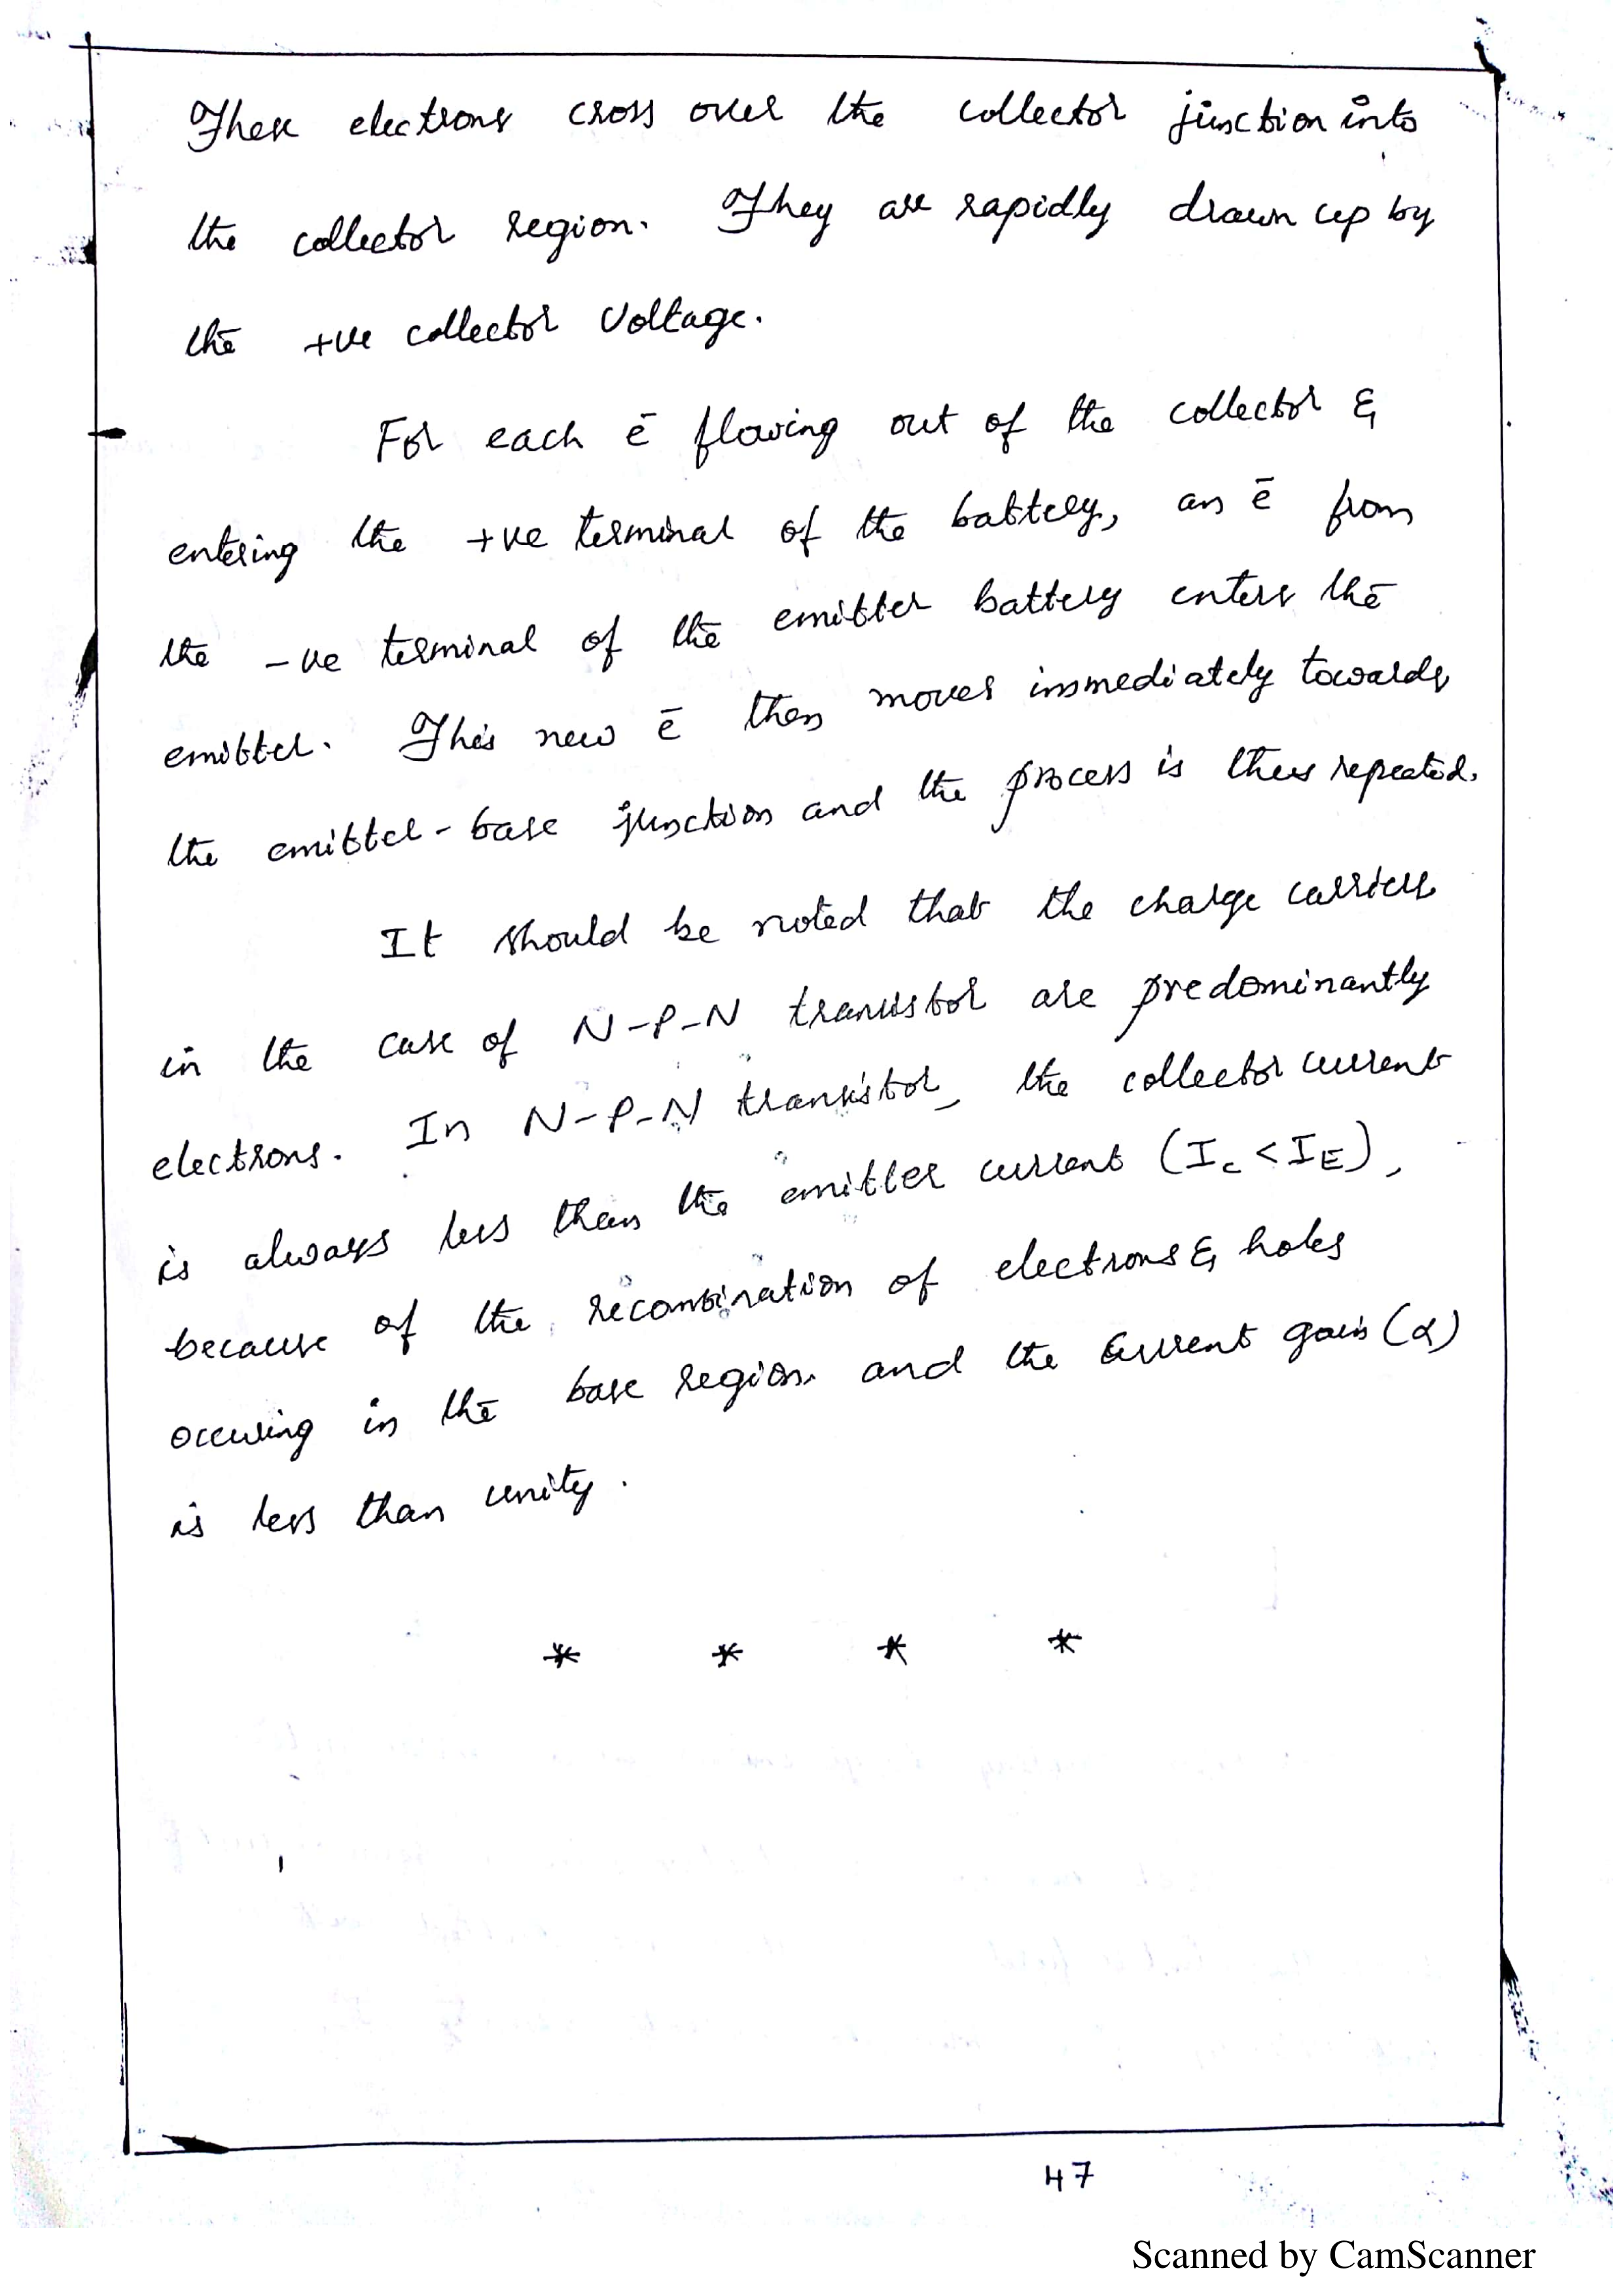 These electrons cross over the collector junction into
the collector region. They are rapidly drawn up by
the +ve collector Voltage.
For each ē flowing out of the collector &
entering the +ve terminal of the battery, an ē from
the -ve terminal of the emitter battery enters the
emitter. This new ē then moves immediately towards
the emitter-base junction and the process is thus repeated.
It should be noted that the charge carriers
in the case of N-P-N transistor are predominantly
electrons. In N-P-N transistor, the collector current
is always less than the emitter current (I꜀ < IE),
because of the recombination of electrons & holes
occuring in the base region. and the current gain (α)
is less than unity.
* * * *
47
Scanned by CamScanner